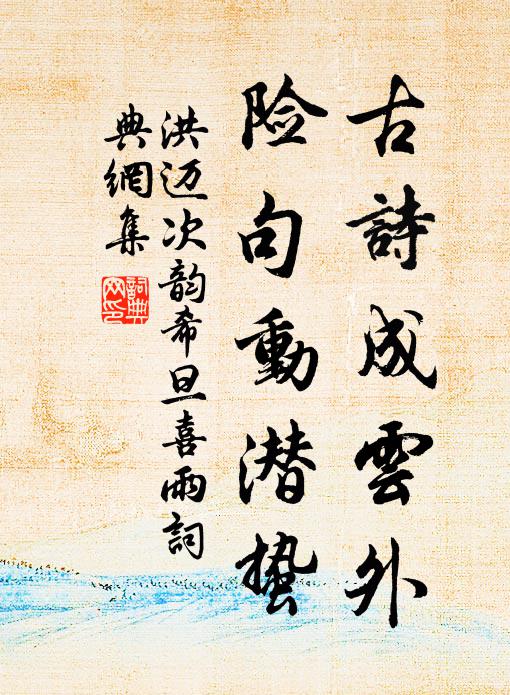 古詩成雲外
险句動潜蛰
洪迈次韵希旦喜雨詞
典網集
詞典
网印